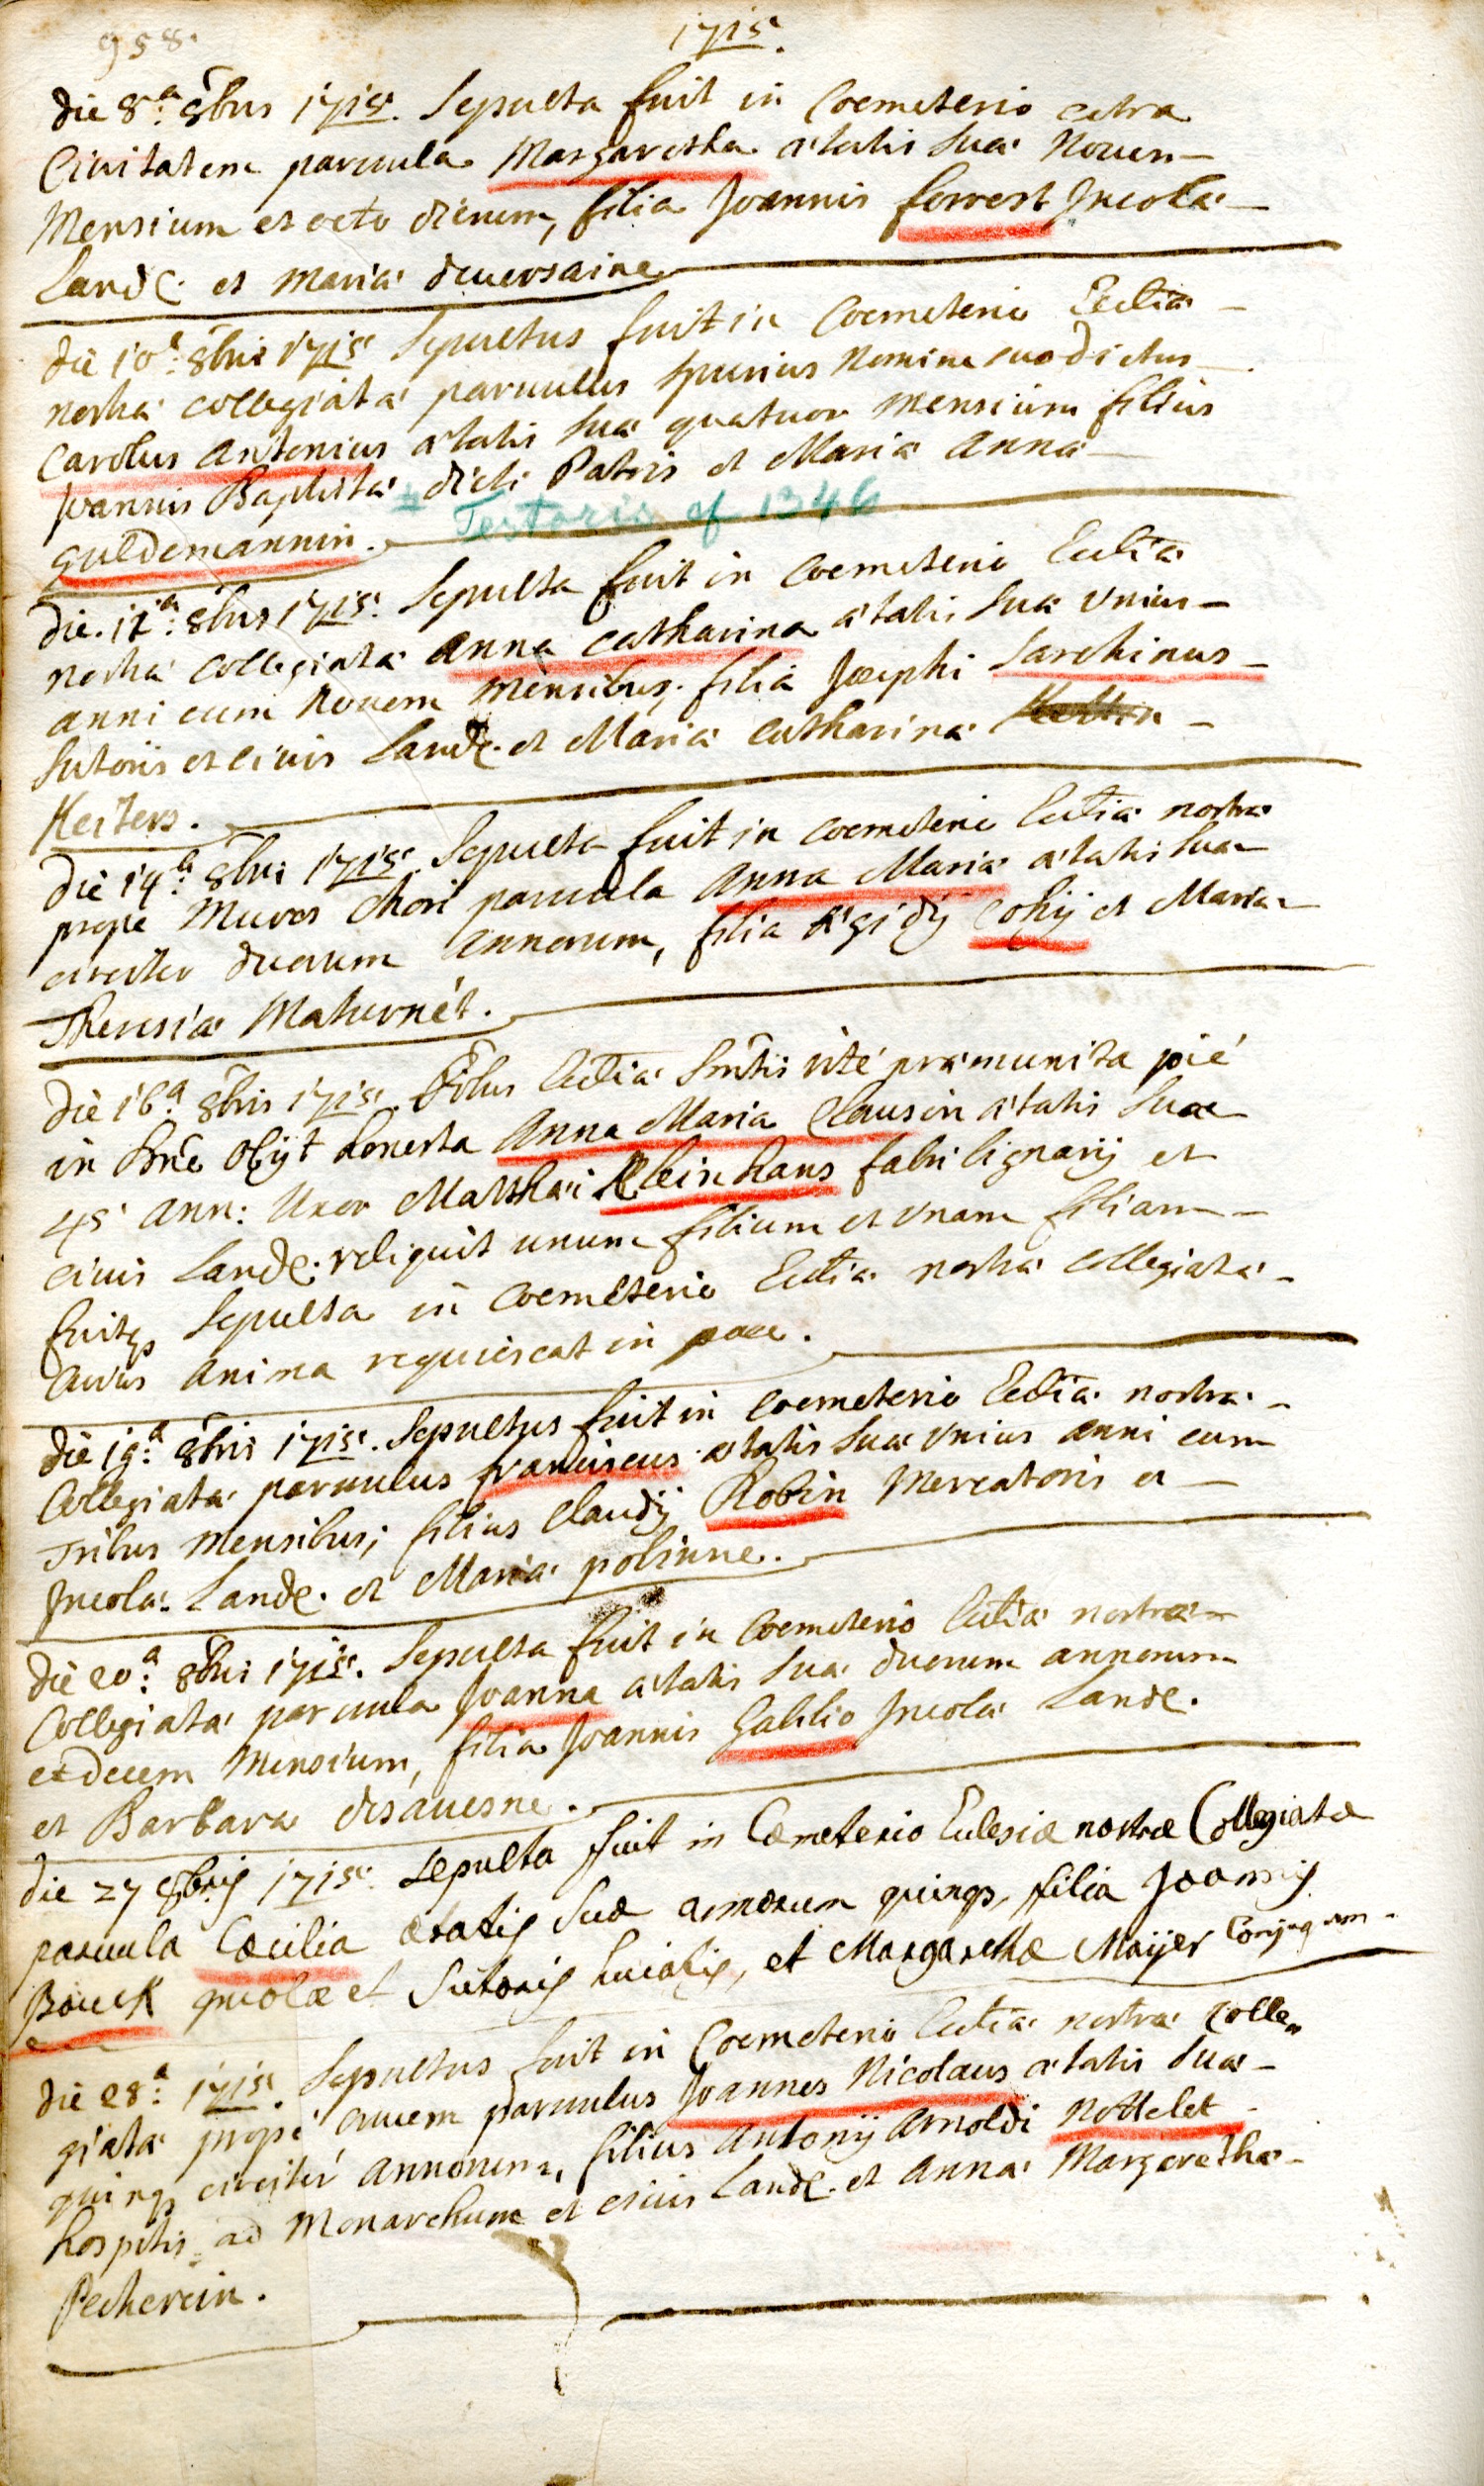 958.
1715.
die 8.a 8bris 1715. Sepulta fuit in Coemeterio extra
Civitatem parvula Margaretha ætatis suæ Novem
Mensium et octo dierum, filia Joannis ferrest Incolæ
Landc. et Mariæ
die 10.a 8bris 1715. Sepultus fuit in Coemeterio Ecctiæ
nostræ collegiatæ parvulus spurius Nomine suo dictus
Carolus Antonius ætatis suæ quatuor mensium filius
Joannis Baptistæ dicti Patris et Mariæ Annæ
guldemannin.
Testoris cf 1346
die. 12.a 8bris 1715. Sepulta fuit in Coemeterio Ecctiæ
nostræ collegiatæ Anna Catharina ætatis suæ Unius
anni cum Novem mensibus, filia Josephi Sarchinus
Sutoris et civis Landc. et Mariæ Catharinæ
Keiters.
die 14.a 8bris 1715. Sepulta fuit in Coemeterio Ecctiæ nostræ
prope Muros Chori parvula Anna Maria ætatis suæ
circiter duorum Annorum, filia Ægidij Cohij et Mariæ
Theresiæ Mahurnét.
die 16.a 8bris 1715. Ecctiæ Smtis rité præmunita pié
in Dno obijt honesta Anna Maria Clausin ætatis suæ
45 Ann: Uxor Matthæi Kleinhans fabri lignarij et
civis Landc. reliquit unum filium et unam filiam
fuitq3 Sepulta in Coemeterio Ecctiæ nostræ Collegiatæ
Cuius Anima requiescat in pace.
die 19.a 8bris 1715. Sepultus fuit in Coemeterio Ecctiæ nostræ
Collegiatæ parvulus franciscus ætatis suæ Unius Anni cum
Tribus Mensibus; filius Claudij Robin Mercatoris et
Incolæ Landc. et Mariæ polinne.
die 20.a 8bris 1715. Sepulta fuit in Coemeterio Ecctiæ nostræ
Collegiatæ parvula Joanna ætatis suæ duorum annorum
et decem Mensium, filia Joannis Gahlio Incolæ Landc.
et Barbara desauesne.
die 27 8bris 1715. Sepulta fuit in Cœmeterio Eclesiæ nostræ Collegiatæ
parvula Cæcilia ætatis Suæ annorum quinq3, filia Joannis
Bouck incolæ et Sutoris huiatis, et Margarethæ Maijer Conjugum
die 28.a 1715. Sepultus fuit in Coemeterio Ecctiæ nostræ Colle
giatæ propé Crucem parvulus Joannes Nicolaus ætatis suæ
quinq3 circiter Annorum, filius Antonij Arnoldi Nottelet
hospitis ad Monarchum et civis Landc. et Annæ Margarethæ
Pecherein.